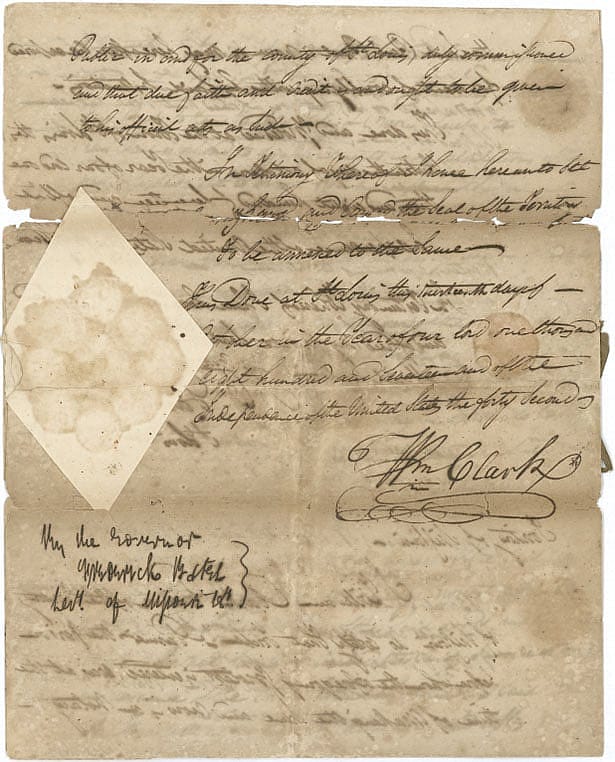 Public in and for the county of St Louis, duly commissioned
and that due faith and credit is and ought to be given
to his official acts as such
In Testimony Whereof I have hereunto Set
my hand and the Seal of the Territory
To be annexed to the Same
Done at St Louis this thirteenth day of
October in the Year of our lord one thousand
eight hundred and Seventeen and of the
Independence of the United States the forty Second
Wm Clark
By the Governor
Frederick Bates
Secy. of Missouri